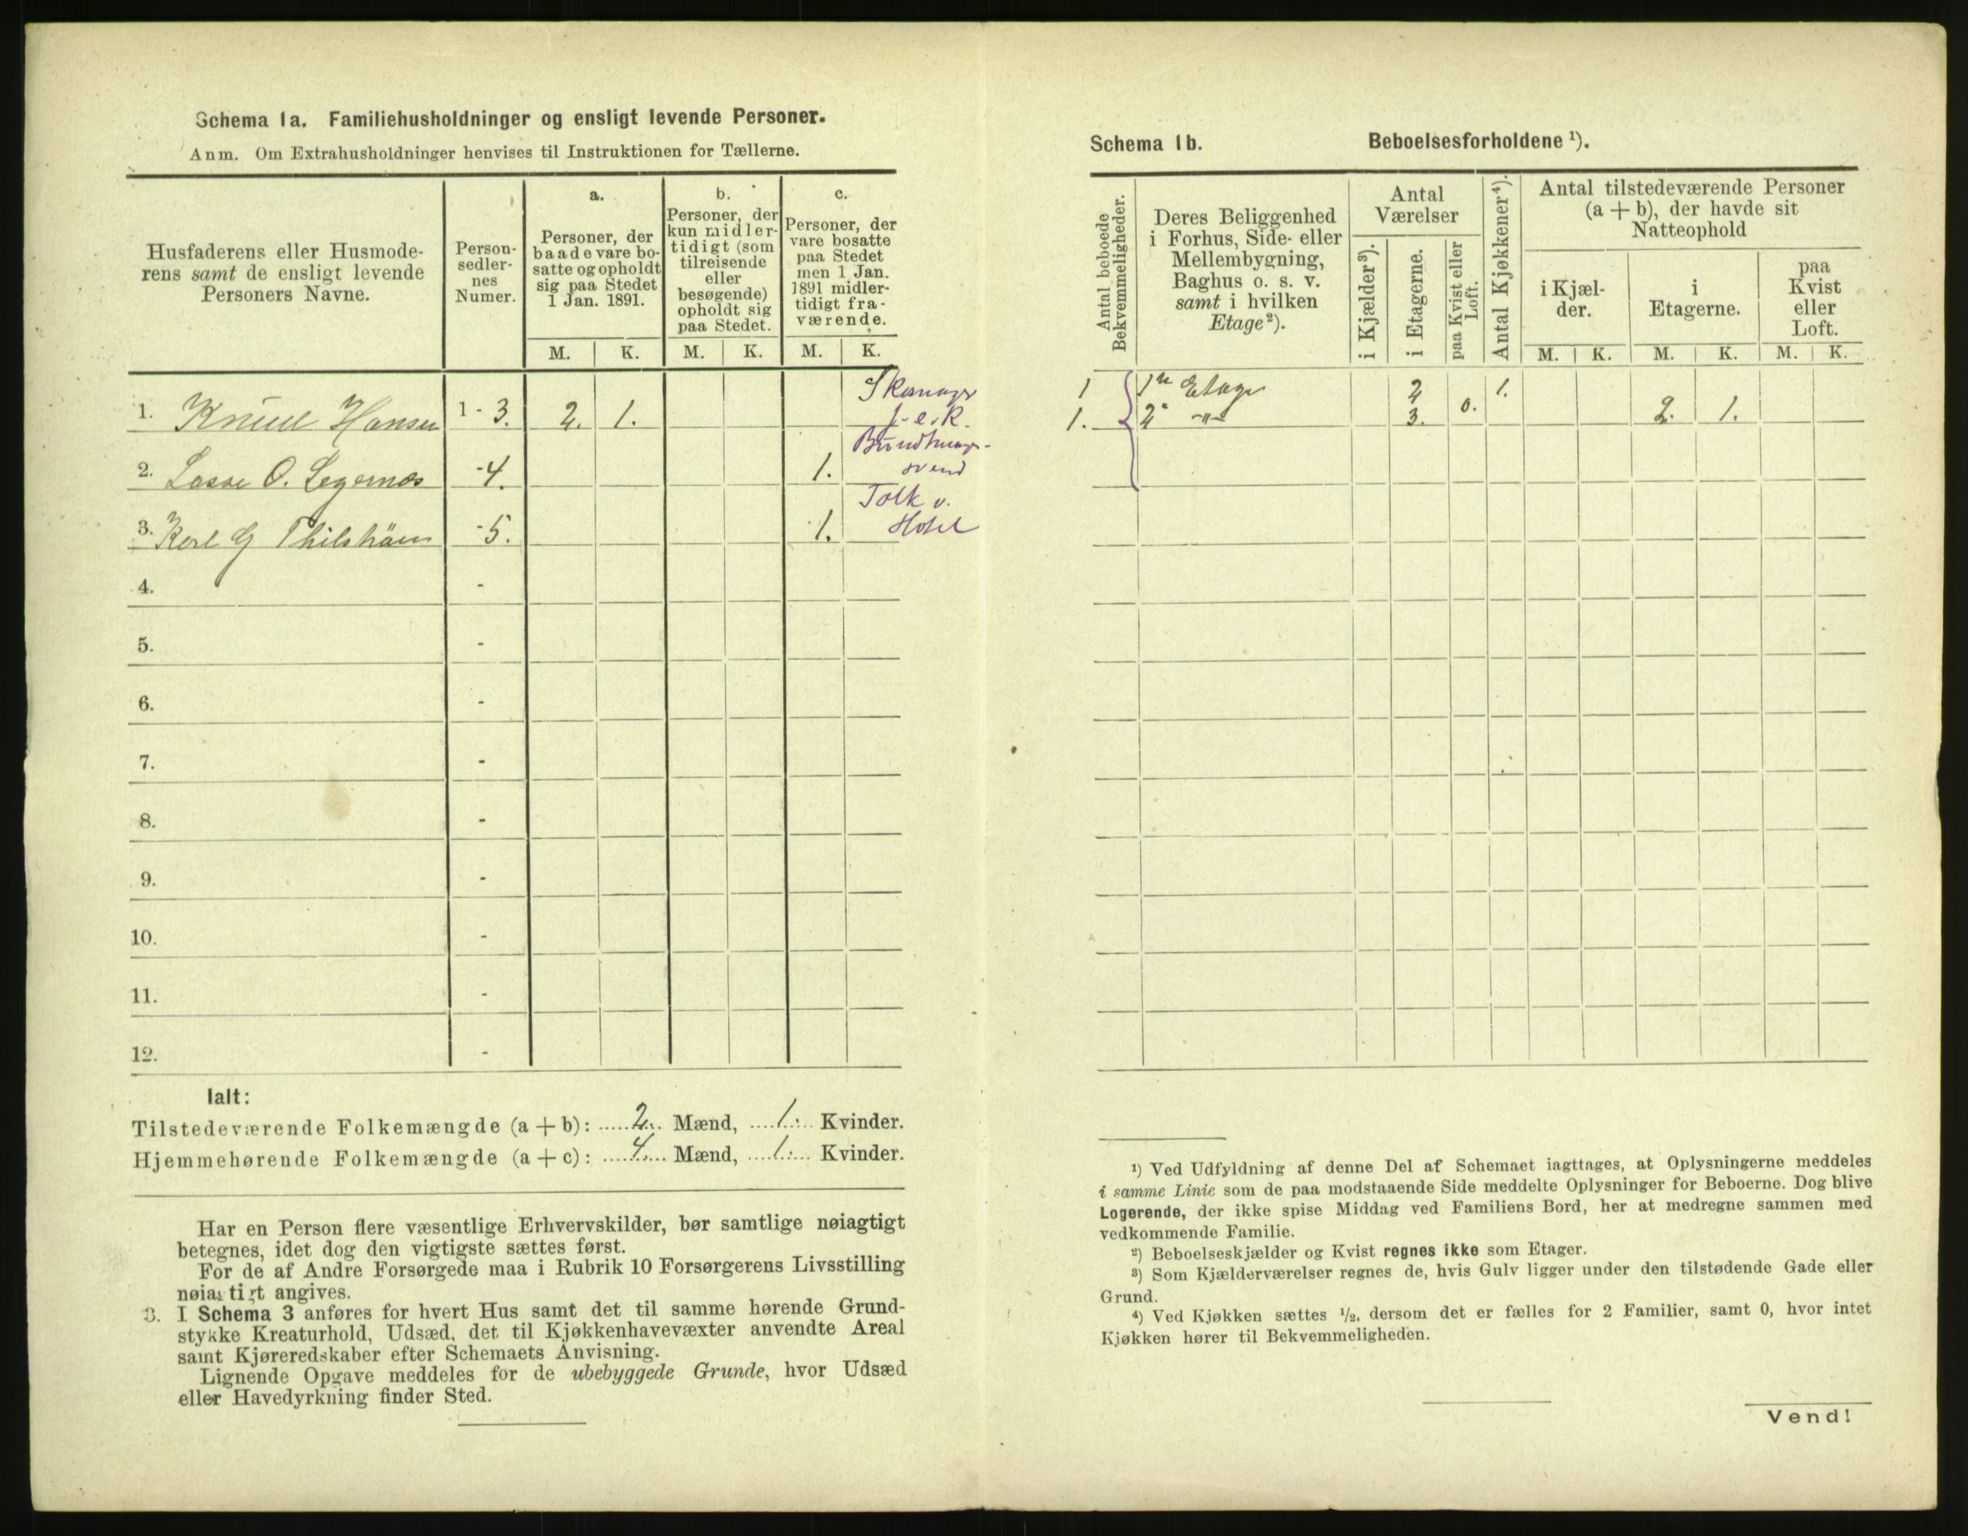 Schema 1a. Familiehusholdninger og ensligt levende Personer.
Anm. Om Extrahusholdninger henvises til Instruktionen for Tællerne.
Husfaderens eller Husmode-
rens samt de ensligt levende
Personers Navne.
Person-
sedler-
nes
Numer.
a.
Personer, der
baade vare bo-
satte og opholdt
sig paa Stedet
1 Jan. 1891.
b.
Personer, der
kun midler-
tidigt (som
tilreisende
eller
besøgende)
opholdt sig
paa Stedet.
c.
Personer, der
vare bosatte
paa Stedet
men 1 Jan.
1891 midler-
tidigt fra-
værende.
M. K. M. K. M. K.
1. Knud Hansen 1 - 3. 2. 1.
2. Lasse O. Legernæs -4. 1. svend
Tolk v.
3. Karl G -5. 1. Hotel
4. -
5. -
6. -
7. -
8. -
9. -
10. -
11. -
12. -
Ialt:
Tilstedeværende Folkemængde (a + b): 2. Mænd, 1. Kvinder.
Hjemmehørende Folkemængde (a + c): 4. Mænd, 1. Kvinder.
Har en Person flere væsentlige Erhvervskilder, bør samtlige nøiagtigt
betegnes, idet dog den vigtigste sættes først.
For de af Andre Forsørgede maa i Rubrik 10 Forsørgerens Livsstilling
nøiagtigt angives.
3. I Schema 3 anføres for hvert Hus samt det til samme hørende Grund-
stykke Kreaturhold, Udsæd, det til Kjøkkenhavevæxter anvendte Areal
samt Kjøreredskaber efter Schemaets Anvisning.
Lignende Opgave meddeles for de ubebyggede Grunde, hvor Udsæd
eller Havedyrkning finder Sted.
Schema 1b. Beboelsesforholdene ¹).
Antal beboede
Bekvemmeligheder.
Deres Beliggenhed
i Forhus, Side- eller
Mellembygning,
Baghus o. s. v.
samt i hvilken
Etage²).
Antal
Værelser
i Kjælder³).
i Etagerne.
paa Kvist eller
Loft.
Antal Kjøkkener⁴).
Antal tilstedeværende Personer
(a + b), der havde sit
Natteophold
i Kjæl-
der.
i
Etagerne.
paa
Kvist
eller
Loft.
M. K. M. K. M. K.
1 1ste Etage 2 0. 1. 2. 1.
1. 2 -"- 3.
¹) Ved Udfyldning af denne Del af Schemaet iagttages, at Oplysningerne meddeles
i samme Linie som de paa modstaaende Side meddelte Oplysninger for Beboerne. Dog blive
Logerende, der ikke spise Middag ved Familiens Bord, her at medregne sammen med
vedkommende Familie.
²) Beboelseskjælder og Kvist regnes ikke som Etager.
³) Som Kjælderværelser regnes de, hvis Gulv ligger under den tilstødende Gade eller
Grund.
⁴) Ved Kjøkken sættes ½, dersom det er fælles for 2 Familier, samt 0, hvor intet
Kjøkken hører til Bekvemmeligheden.
Vend!